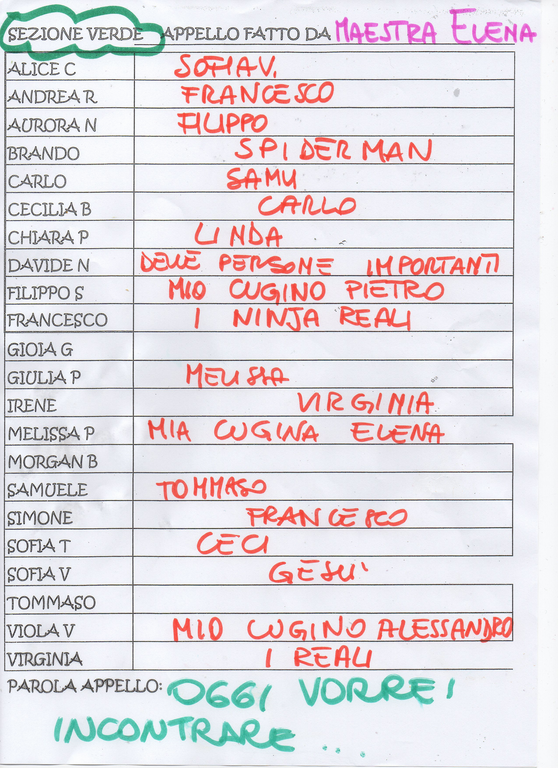 SEZIONE VERDE APPELLO FATTO DA MAESTRA ELENA
ALICE C SOFIA V.
ANDREA R FRANCESCO
AURORA N FILIPPO
BRANDO SPIDERMAN
CARLO SAMU
CECILIA B CARLO
CHIARA P LINDA
DAVIDE N DELLE PERSONE IMPORTANTI
FILIPPO S MIO CUGINO PIETRO
FRANCESCO I NINJA REALI
GIOIA G
GIULIA P MELISSA
IRENE VIRGINIA
MELISSA P MIA CUGINA ELENA
MORGAN B
SAMUELE TOMMASO
SIMONE FRANCESCO
SOFIA T CECI
SOFIA V GESU'
TOMMASO
VIOLA V MIO CUGINO ALESSANDRO
VIRGINIA I REALI
PAROLA APPELLO: OGGI VORREI
INCONTRARE ...